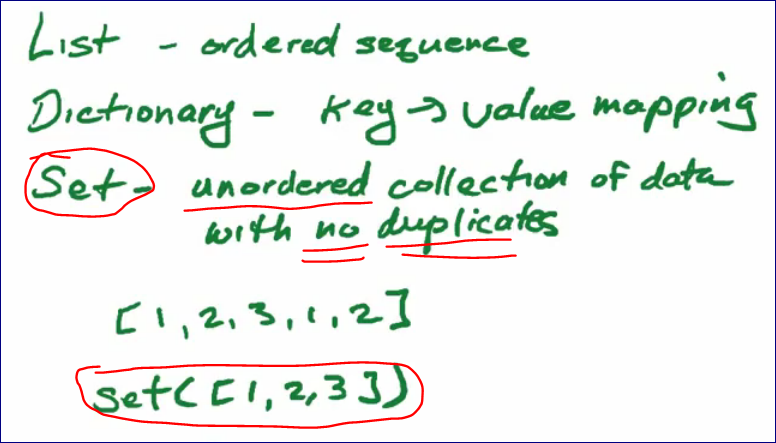 List - ordered sequence
Dictionary - key → value mapping
Set - unordered collection of data
with no duplicates
[1, 2, 3, 1, 2]
set([1, 2, 3])